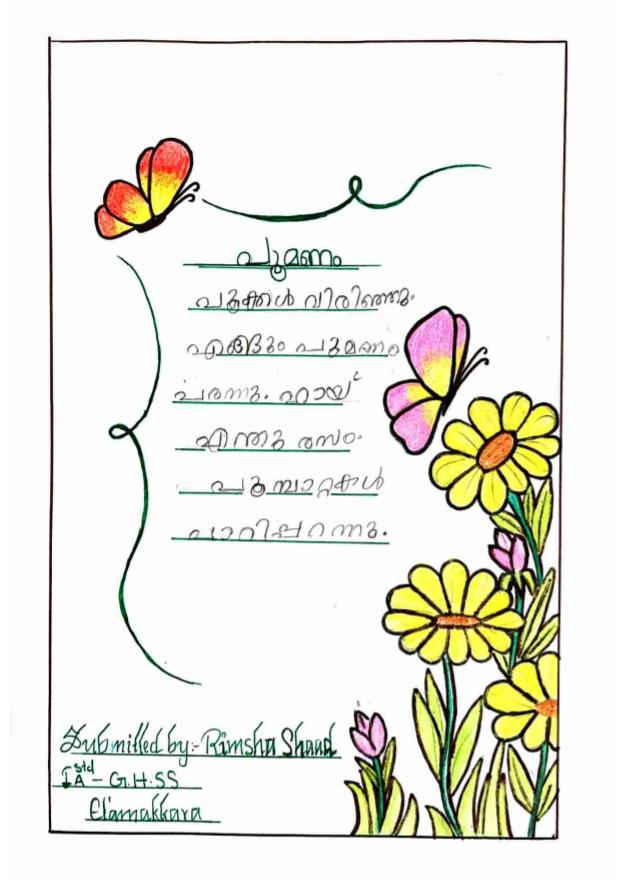 പൂമണം
പൂക്കൾ വിരിഞ്ഞു.
എങ്ങും പൂമണം
പരന്നു. ഹായ്
എന്തു രസം.
പൂമ്പാറ്റകൾ
പാറിപ്പറന്നു.
Submitted by:- Rimsha Shaad
I std A - G.H.SS
Elamakkara